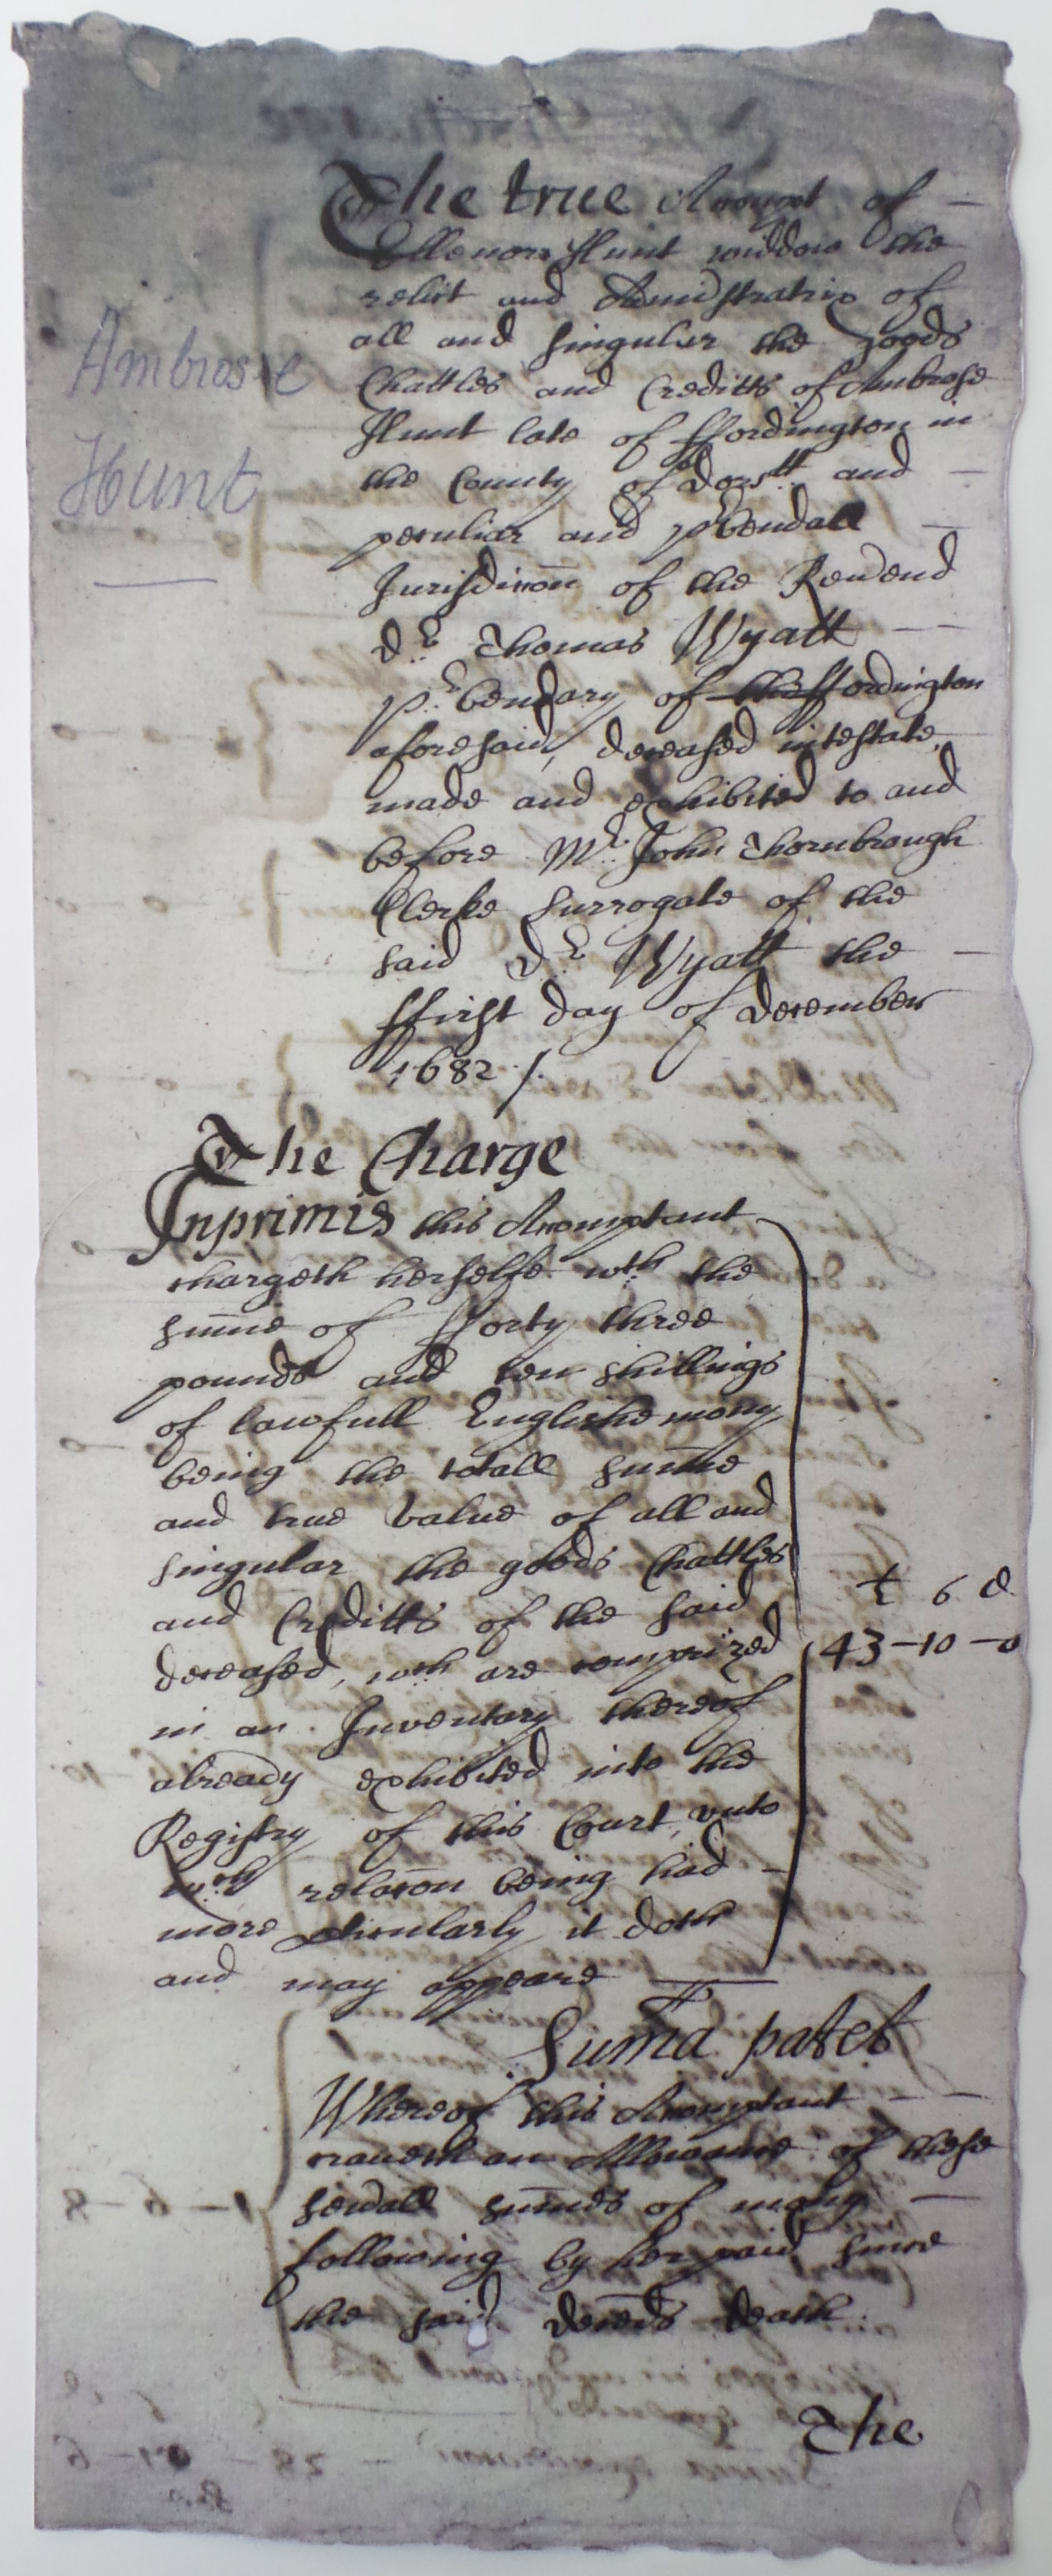 The true Accompt of
Ellenor Hunt widdow the
relict and Administratrix of
all and singuler the goods
Chattles and Creditts of Ambrose
Ambrose
Hunt late of ffordington in
Hunt
the County of Dorstt and
peculiar and prbendall
Jurisdiccon of the Revend
Dr Thomas Wyatt
pr:bendary of the ffordington
aforesaid, deceased intestate,
made and exhibited to and
before Mr. John Thornbrough
Clerke Surrogate of the
said Dr Wyatt the
ffirst day of December
1682 /.
The Charge
Inprimis this Accomptant
chargeth herselfe wth the
sum̄e of fforty three
pounds and ten shillings
of lawfull Englishe mony
being the totall sum̄e
and true value of all and
singular the goods Chattles
and Creditts of the said
deceased, wch are comprized
£ s d
43-10-0
in an Inventary thereof
already exhibited into the
Registry of this Court, vnto
wch relac̄on being had
more pticularly it doth
and may appeare
Sum̄a patet
Whereof this Accomptant
craveth an Allowance of these
sevall sum̄es of mony
following by her paid since
the said deceds death.
The